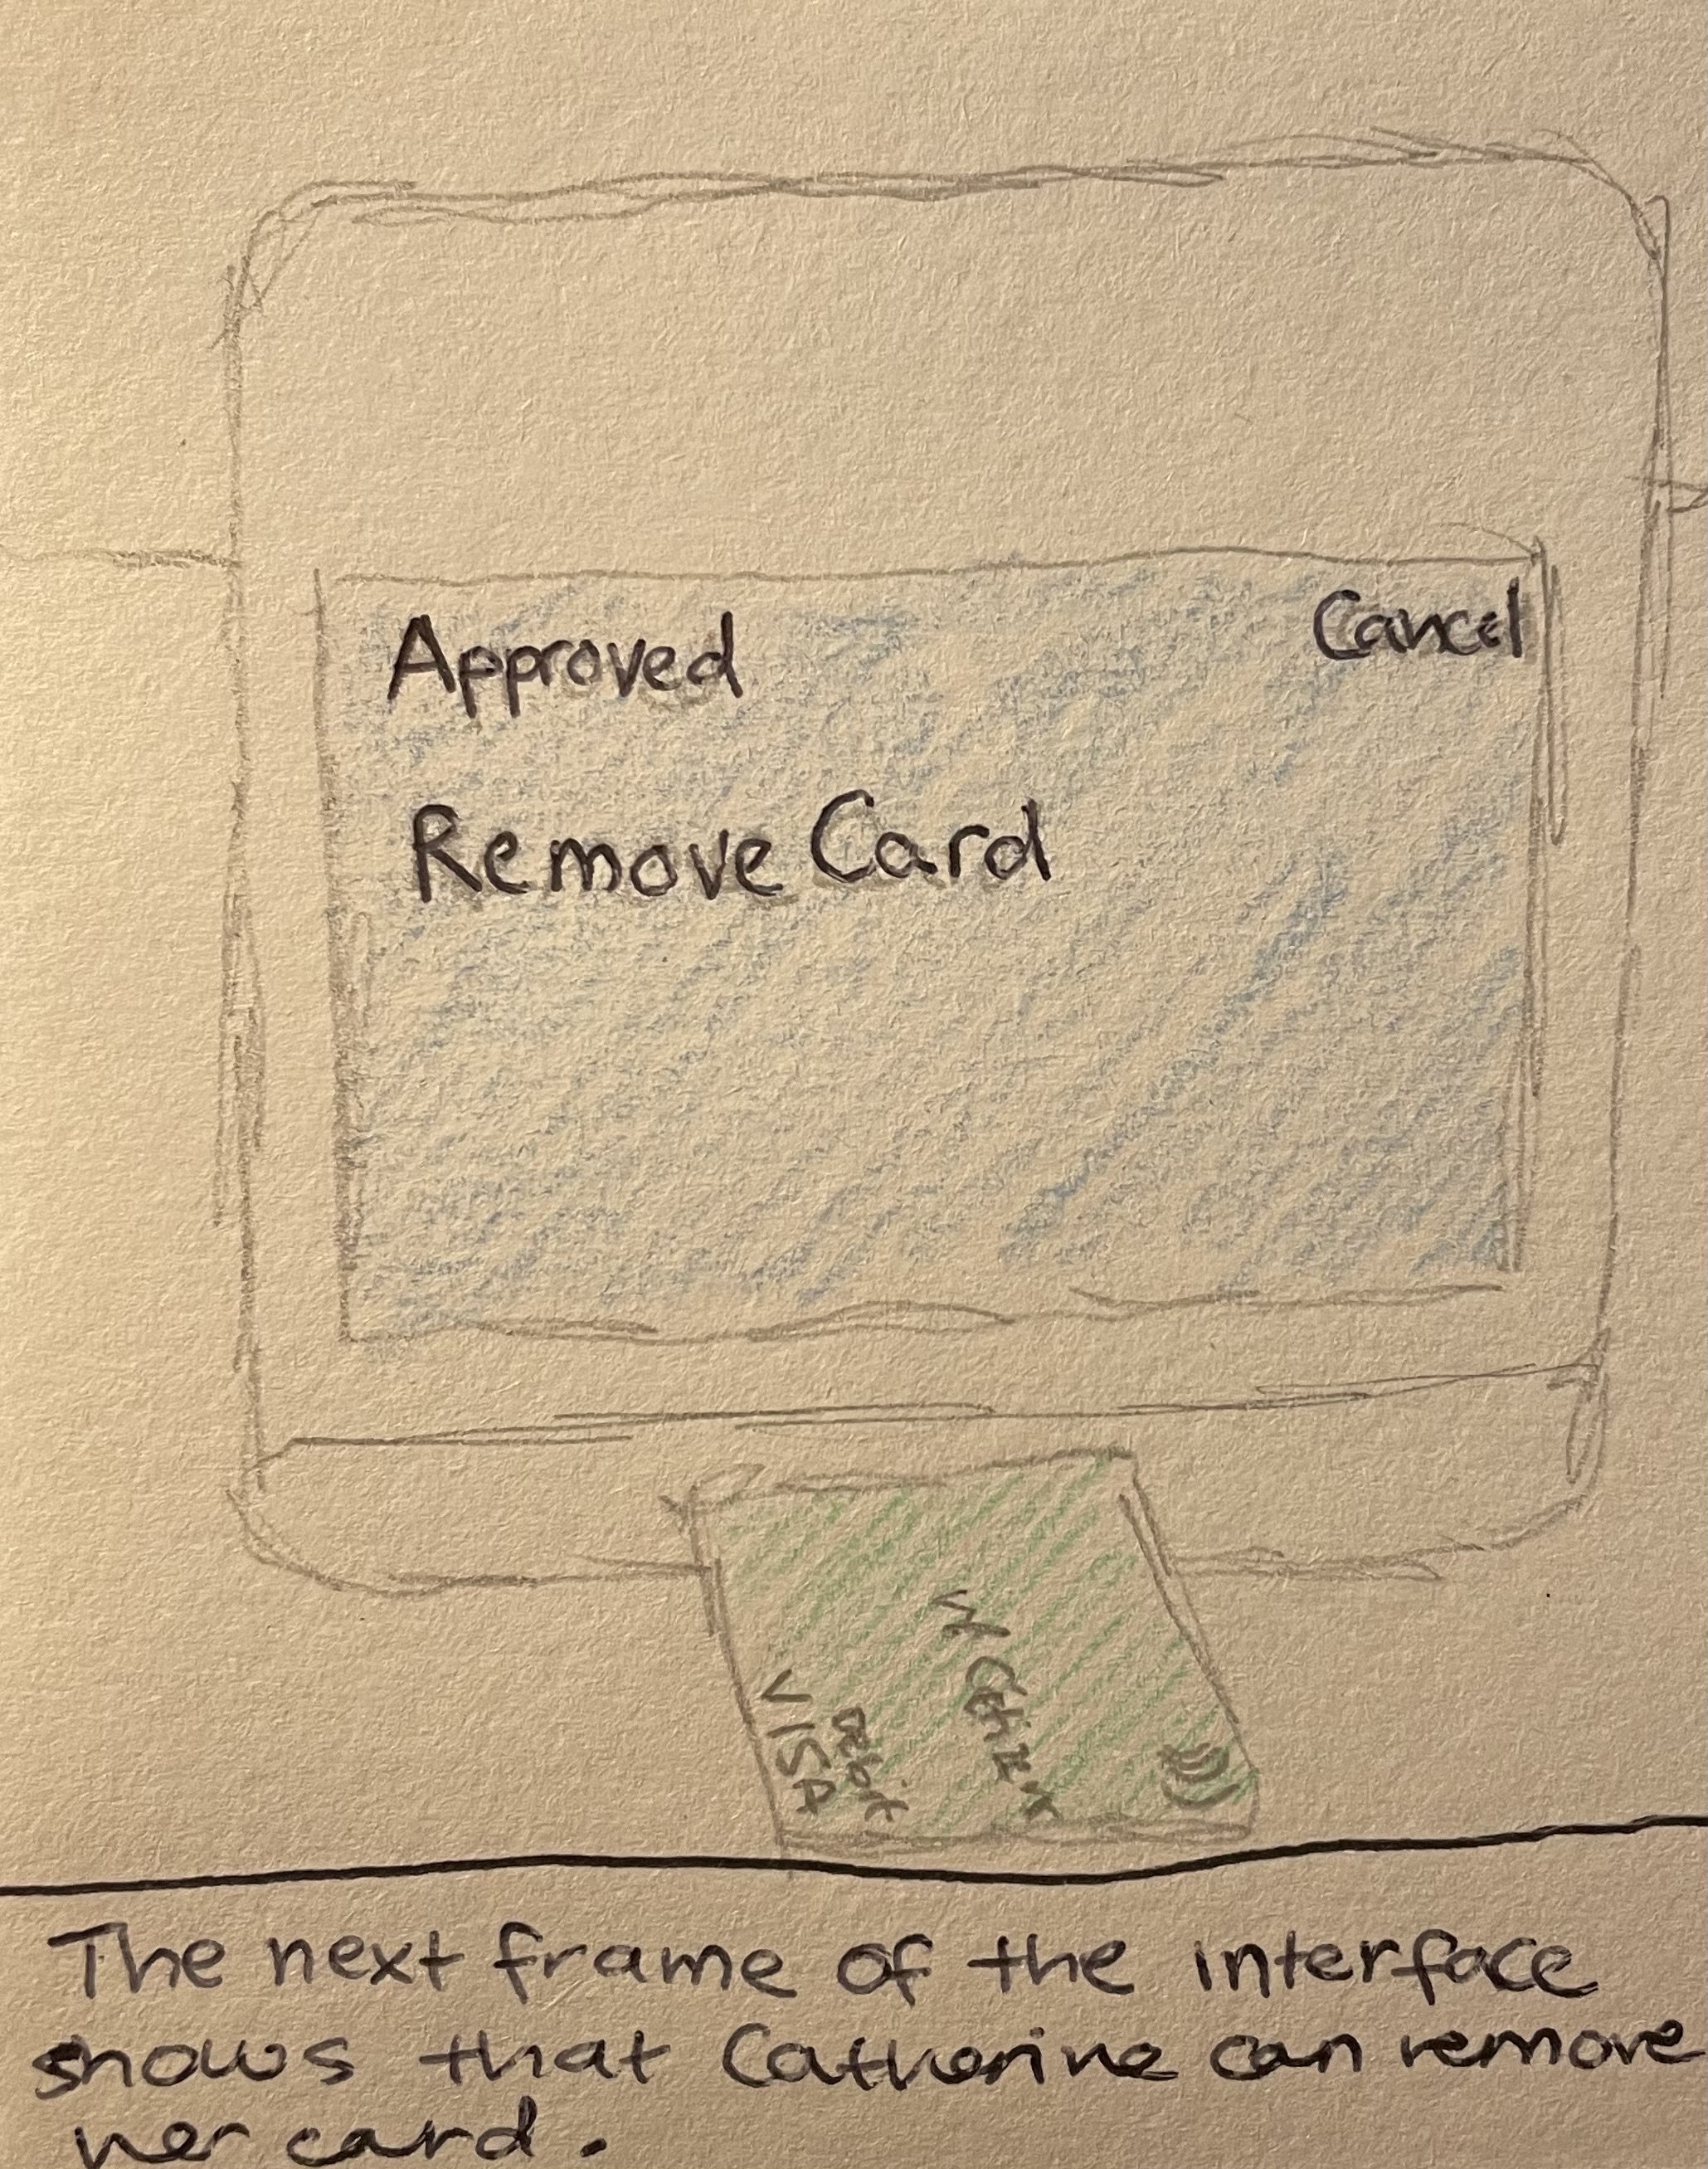 Approved
Cancel
Remove Card
Citizen
DEbit
VISA
The next frame of the interface
shows that Catherine can remove
her card.